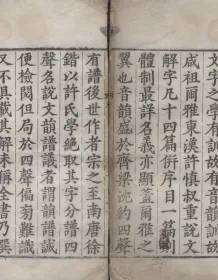 文字之學有訓故有音韻訓故
咸祖爾雅東漢許慎叔重說文
解字凡十四篇併序目一篇則
體制最詳名義亦顯蓋爾雅之
翼也音韻盛於齊梁沈約四聲
有譜後世作者宗之至南唐徐
鍇以許氏學絕取其字分譜四
聲名說文韻譜識者謂韻譜誠
便檢閱但局於四聲偏旁難識
又不具載其解未稱全書乃巽